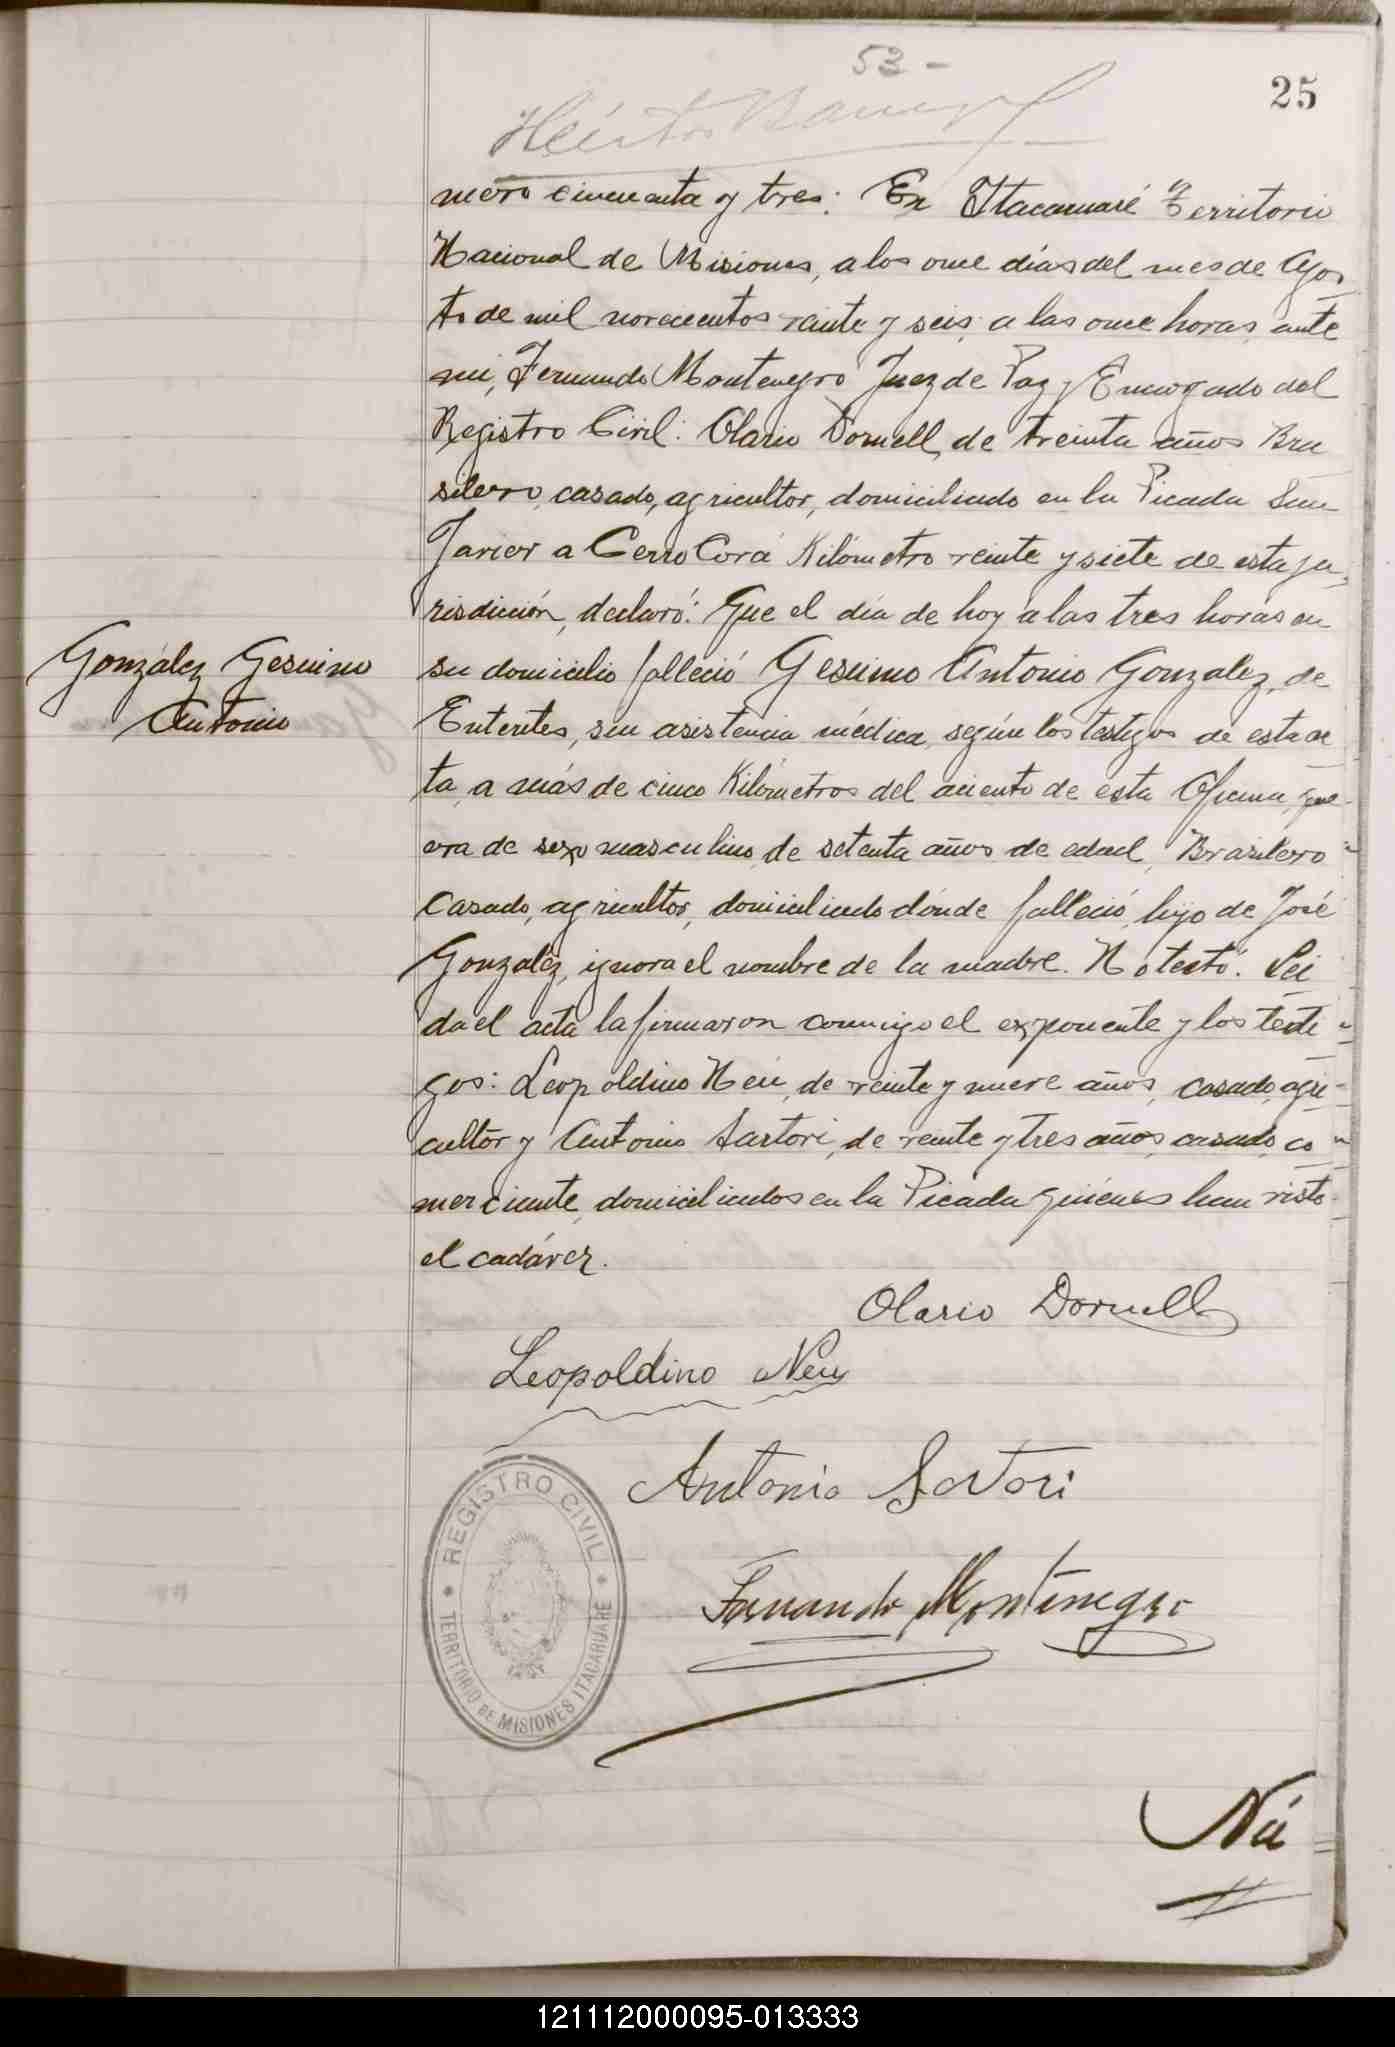 53-
25
mero cincuenta y tres: En Itacaruaré Territorio
Nacional de Misiones, a los once días del mes de Agos
to de mil novecientos veinte y seis, a las once horas, ante
mi, Fernando Montenegro Juez de Paz y Encargado del
Registro Civil: Olario Dornell, de treinta años Bra
silero, casado, agricultor, domiciliado en la Picada San
Javier a Cerro Corá Kilómetro veinte y siete de esta ju
risdicción, declaró: Que el día de hoy a las tres horas en
González Gesuino
Antonio
su domicilio falleció Gesuino Antonio Gonzalez, de
Enterites, sin asistencia médica, según los testigos de esta ac
ta, a más de cinco Kilómetros del aciento de esta Oficina, que
era de sexo masculino, de setenta años de edad, Brasilero
casado, agricultor, domiciliado dónde falleció, hijo de José
Gonzaléz, ignora el nombre de la madre. No testó. Leí
da el acta la firmaron conmigo el exponente y los testi
gos: Leopoldino Neu, de veinte y nueve años, casado, agri-
cultor y Antonio Sartori, de veinte y tres años, casado, co
merciante, domiciliados en la Picada quiénes han visto
el cadáver.
Olario Dornell
Leopoldino Neu
Antonio Sartori
Fernando Montenegro
REGISTRO CIVIL
TERRITORIO DE MISIONES ITACARUARE
Nú
121112000095-013333